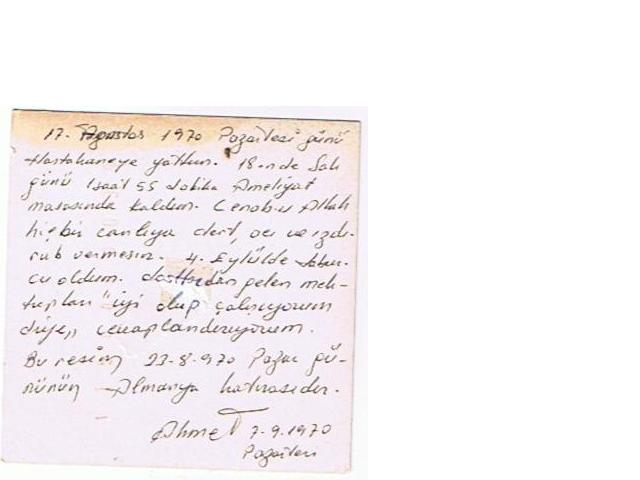 17. Ağustos 1970 Pazartesi günü
Hastahaneye yattım. 18-nde Salı
günü 1 saat 55 dakika Ameliyat
masasında kaldım. Cenab-ı Allah
hiçbir canlıya dert, acı ve ızdı-
rab vermesin. 4. Eylülde tabur-
cu oldum. dostlardan gelen mek-
tupları "iyi olup çalışıyorum
diye,, cevaplandırıyorum.
Bu resim 23-8-970 Pazar gü-
nünün Almanya hatırasıdır.
Ahmet 7-9-1970
Pazartesi